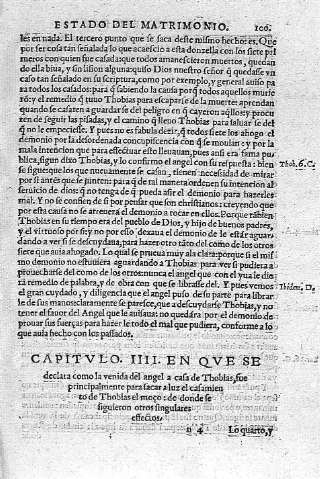 ESTADO DEL MATRIMONIO. 100.
les en nada. El tercero punto que se saca deste mismo hecho es. Que
por ser cosa tan señalada lo que acaescio a esta donzella con los siete pri
meros con quien fue casada: que todos amanescieron muertos, quedan
do ella biua, y sin lision alguna: quiso Dios nuestro señor q̃ quedasse vn
caso tan señalado en su scriptura, como por exemplo, y general auiso pa
ra todos los casados: para q̃ sabiendo la causa porq̃ todos aquellos murie
rõ; y el remedio q̃ tuuo Thobias para escaparse de la muerte: aprendan
quando se casaren a guardarse del peligro en q̃ cayeron aq̃llos: y procu
ren de seguir las pisadas, y el camino q̃ lleuo Thobias para saluar se del
q̃ no le empeciesse. Y pues no es fabula dezir, q̃ todos siete los ahogo el
demonio por la desordenada concupiscencia con q̃ se mouian: y por la
mala intencion que para effectuar esto lleuauan, pues ansi era fama pu-
blica, segun dixo Thobias, y lo confirmo el angel con su respuesta: bien
se sigue que los que nueuamente se casan, tienen necessidad de mirar
por si antes que se junten: para q̃ de tal manera ordenen su intencion al
seruicio de dios: q̃ no tenga de q̃ pueda asir el demonio para hazerles
mal. Y no se confien de si por pensar que son christianos: creyendo que
por esta causa no se atreuera el demonio a tocar en ellos. Porque tãbien
Thobias en su tiempo era del pueblo de Dios, y hijo de buenos padres,
y el virtuoso por sy: no por esso dexaua el demonio de le estar aguar-
dando a ver si se descuydaua, para hazer otro tãto del como de los otros
siete que auia ahogado. Lo qual se prueua muy a la clara: porque si el mis
mo demonio no estuuiera aguardando a Thobias para ver si pudiera a
prouecharse del como de los otros: nunca el angel que con el yua le die
ra remedio de palabra, y de obra con que se librasse del. Y pues vemos
el gran cuydado, y diligencia que el angel puso de su parte para librar
le de sus manos: claramente se paresce, que a descuydarse Thobias, y no
tener el fauor del Angel que le auisaua: no quedara por el demonio de
prouar sus fuerças para hazer le todo el mal que pudiera, conforme a lo
que auia hecho con los passados.
Thob. 6. C.
CAPITVLO. IIII. EN QVE SE
declara como la venida del angel a casa de Thobias, fue
principalmente para sacar a luz el casamien
to de Thobias el moço: de donde se
siguieron otros singulares
effectos.
n 4 Lo quarto, y